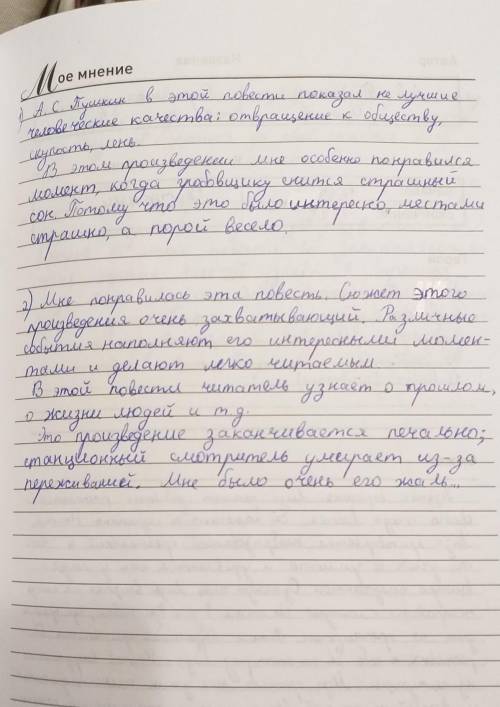 Мое мнение
1) А.С. Пушкин в этой повести показал не лучшие
человеческие качества: отвращение к обществу,
скупость, лень.
В этом произведении мне особенно понравился
момент, когда гробовщику снится страшный
сон. Потому что это было интересно, местами
страшно, а порой весело.
2) Мне понравилась эта повесть. Сюжет этого
произведения очень захватывающий. Различные
события наполняют его интересными момен-
тами и делают легко читаемым.
В этой повести читатель узнаёт о прошлом,
о жизни людей и т.д.
Это произведение заканчивается печально;
станционный смотритель умирает из-за
переживаний. Мне было очень его жаль...